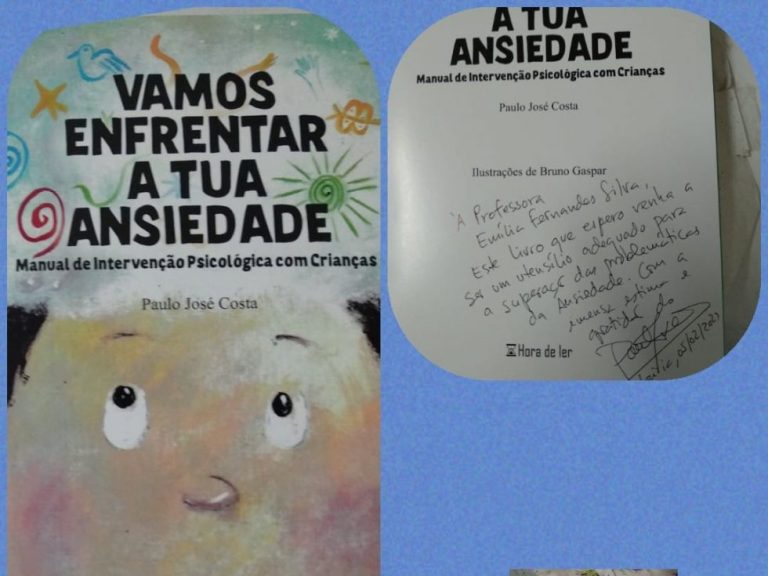 VAMOS
ENFRENTAR
A TUA
ANSIEDADE
Manual de Intervenção Psicológica com Crianças
Paulo José Costa
A TUA
ANSIEDADE
Manual de Intervenção Psicológica com Crianças
Paulo José Costa
Ilustrações de Bruno Gaspar
À Professora
Emília Fernandes Silva,
Este livro que espero venha a
ser um utensílio adequado para
a superação das problemáticas
da Ansiedade. Com a
imensa estima e
gratidão do
05/02/2021
Hora de ler